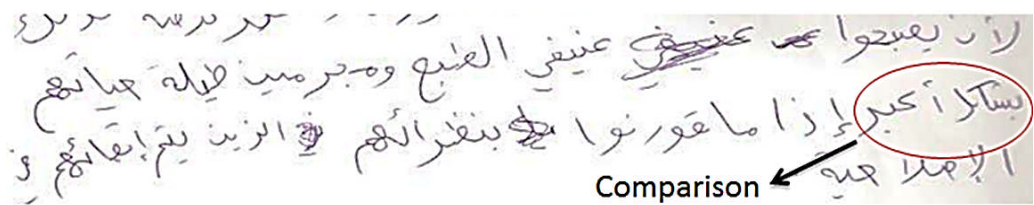 لأن يصبحوا عنيفي الطبع ومجرمين طيلة حياتهم
بشكل أكبر إذا ما قورنوا بنظرائهم الذين يتم إبقائهم في
الإصلاحية
Comparison